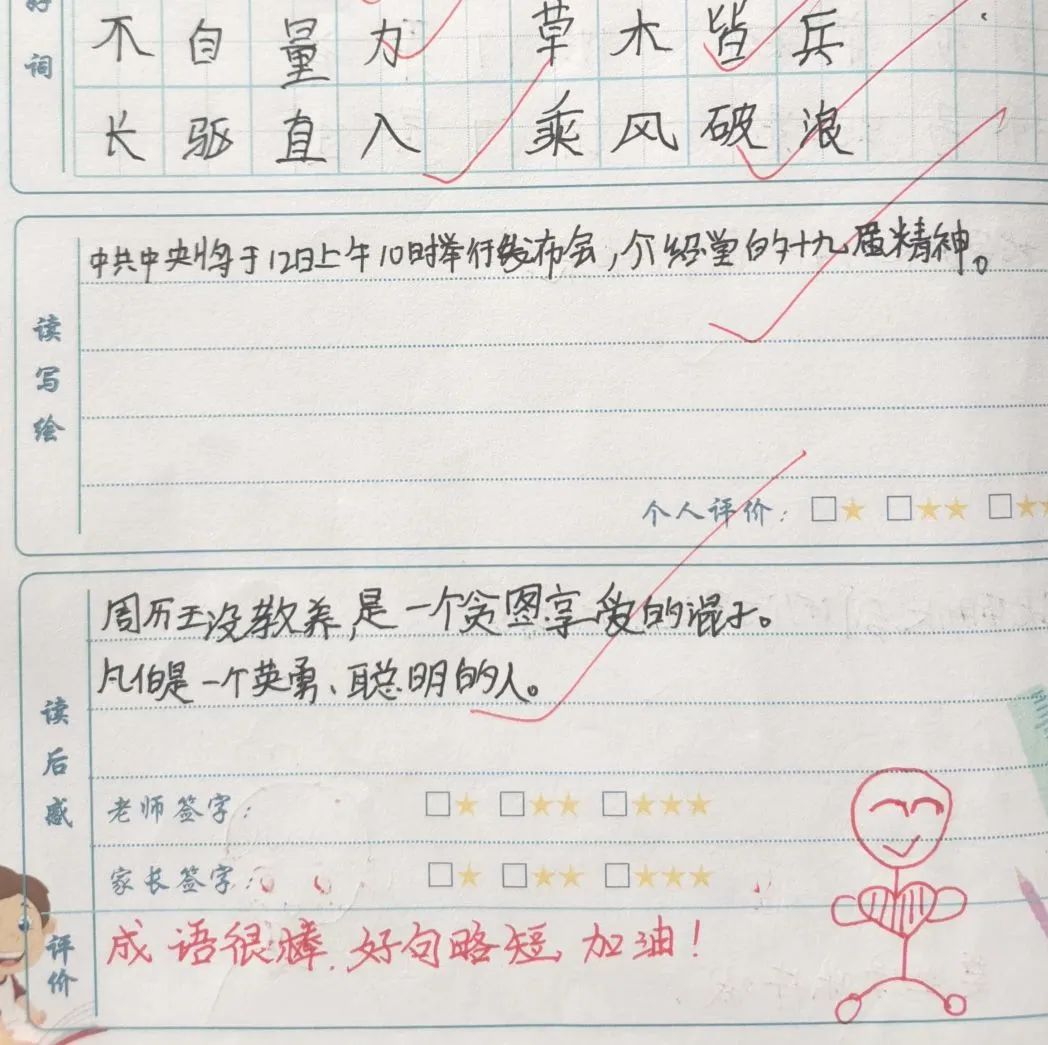 好词
不自量力 草木皆兵
长驱直入 乘风破浪
读写绘
中共中央将于12日上午10时举行发布会,介绍党的十九届精神。
个人评价:
读后感
周历王没教养,是一个贪图享受的混子。
凡伯是一个英勇、聪明的人。
老师签字:
家长签字:
评价
成语很棒,好句略短,加油!